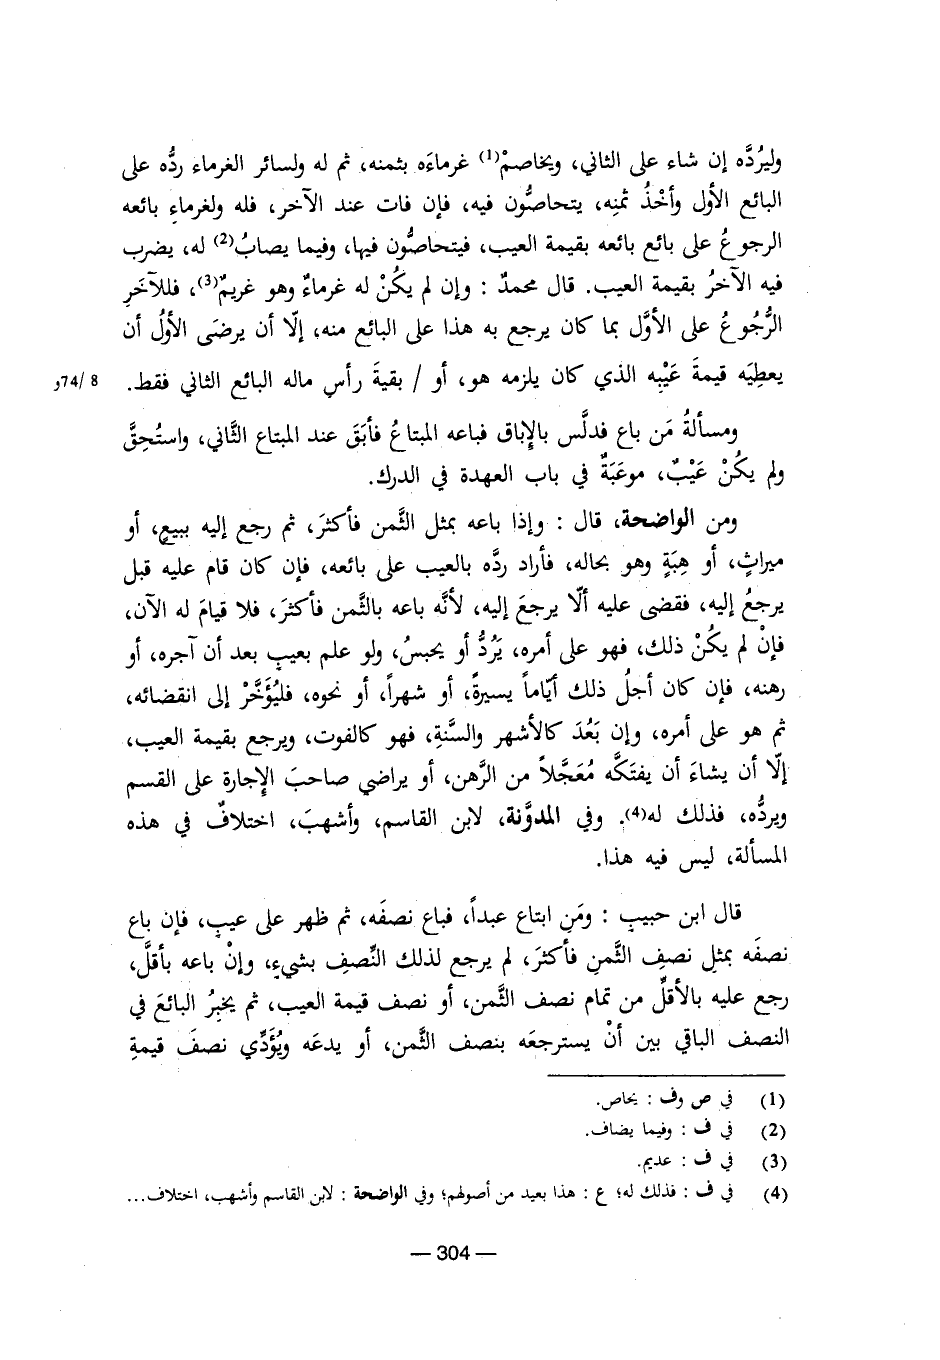 وليرُدَّه إن شاء على الثاني، ويخاصمْ(1) غرماءَه بثمنه، ثم له ولسائر الغرماء ردُّه على
البائع الأول وأخْذُ ثمنِه، يتحاصُّون فيه، فإن فات عند الآخر، فله ولغرماءِ بائعه
الرجوعُ على بائع بائعه بقيمة العيب، فيتحاصُّون فيها، وفيما يصابُ(2) له، يضرب
فيه الآخرُ بقيمة العيب. قال محمدٌ : وإن لم يكُنْ له غرماءٌ وهو غريمٌ(3)، فللآخَرِ
الرُّجُوعُ على الأوَّل بما كان يرجع به هذا على البائع منه، إلّا أن يرضَى الأولُ أن
يعطِيَه قيمةَ عَيْبِه الذي كان يلزمه هو، أو / بقيةَ رأسِ ماله البائع الثاني فقط. 8 /74و
ومسألةُ مَن باع فدلَّس بالإباق فباعه المبتاعُ فأبَقَ عند المبتاع الثَّاني، واستُحِقَّ
ولم يكُنْ عَيْبٌ، موعَبَةٌ في باب العهدة في الدرك.
ومن الواضحة، قال : وإذا باعه بمثل الثَّمن فأكثرَ، ثم رجع إليه ببيعٍ، أو
ميراثٍ، أو هِبَةٍ وهو بحاله، فأراد ردَّه بالعيب على بائعه، فإن كان قام عليه قبل
يرجعُ إليه، فقضى عليه ألّا يرجعَ إليه، لأنَّه باعه بالثَّمن فأكثرَ، فلا قيامَ له الآن،
فإنْ لم يكُنْ ذلك، فهو على أمره، يَرُدُّ أو يحبسُ، ولو علم بعيبٍ بعد أن آجره، أو
رهنه، فإن كان أجلُ ذلك أيّاماً يسيرةً، أو شهراً، أو نحوه، فليُؤَخَّرْ إلى انقضائه،
ثم هو على أمره، وإن بَعُدَ كالأشهر والسَّنةِ، فهو كالفوت، ويرجع بقيمة العيب،
إلّا أن يشاءَ أن يفتَكَّه مُعَجَّلاً من الرَّهن، أو يراضي صاحبَ الإجارة على القسم
ويردُّه، فذلك له(4). وفي المدوَّنة، لابن القاسم، وأشهبَ، اختلافٌ في هذه
المسألة، ليس فيه هذا.
قال ابن حبيبٍ : ومَنِ ابتاع عبداً، فباع نصفَه، ثم ظهر على عيبٍ، فإن باع
نصفَه بمثلِ نصفِ الثَّمنِ فأكثرَ، لم يرجع لذلك النِّصفِ بشيءٍ، وإنْ باعه بأقلَّ،
رجع عليه بالأقلِّ من تمام نصف الثَّمن، أو نصف قيمة العيب، ثم يخيرُ البائعَ في
النصف الباقي بين أنْ يسترجعَه بنصف الثَّمن، أو يدعَه ويُؤَدِّي نصفَ قيمةِ
(1) في ص وف : يحاص.
(2) في ف : وفيما يضاف.
(3) في ف : عديم.
(4) في ف : فذلك له؛ ع : هذا بعيد من أصولهم؛ وفي الواضحة : لابن القاسم وأشهب، اختلاف...
— 304 —